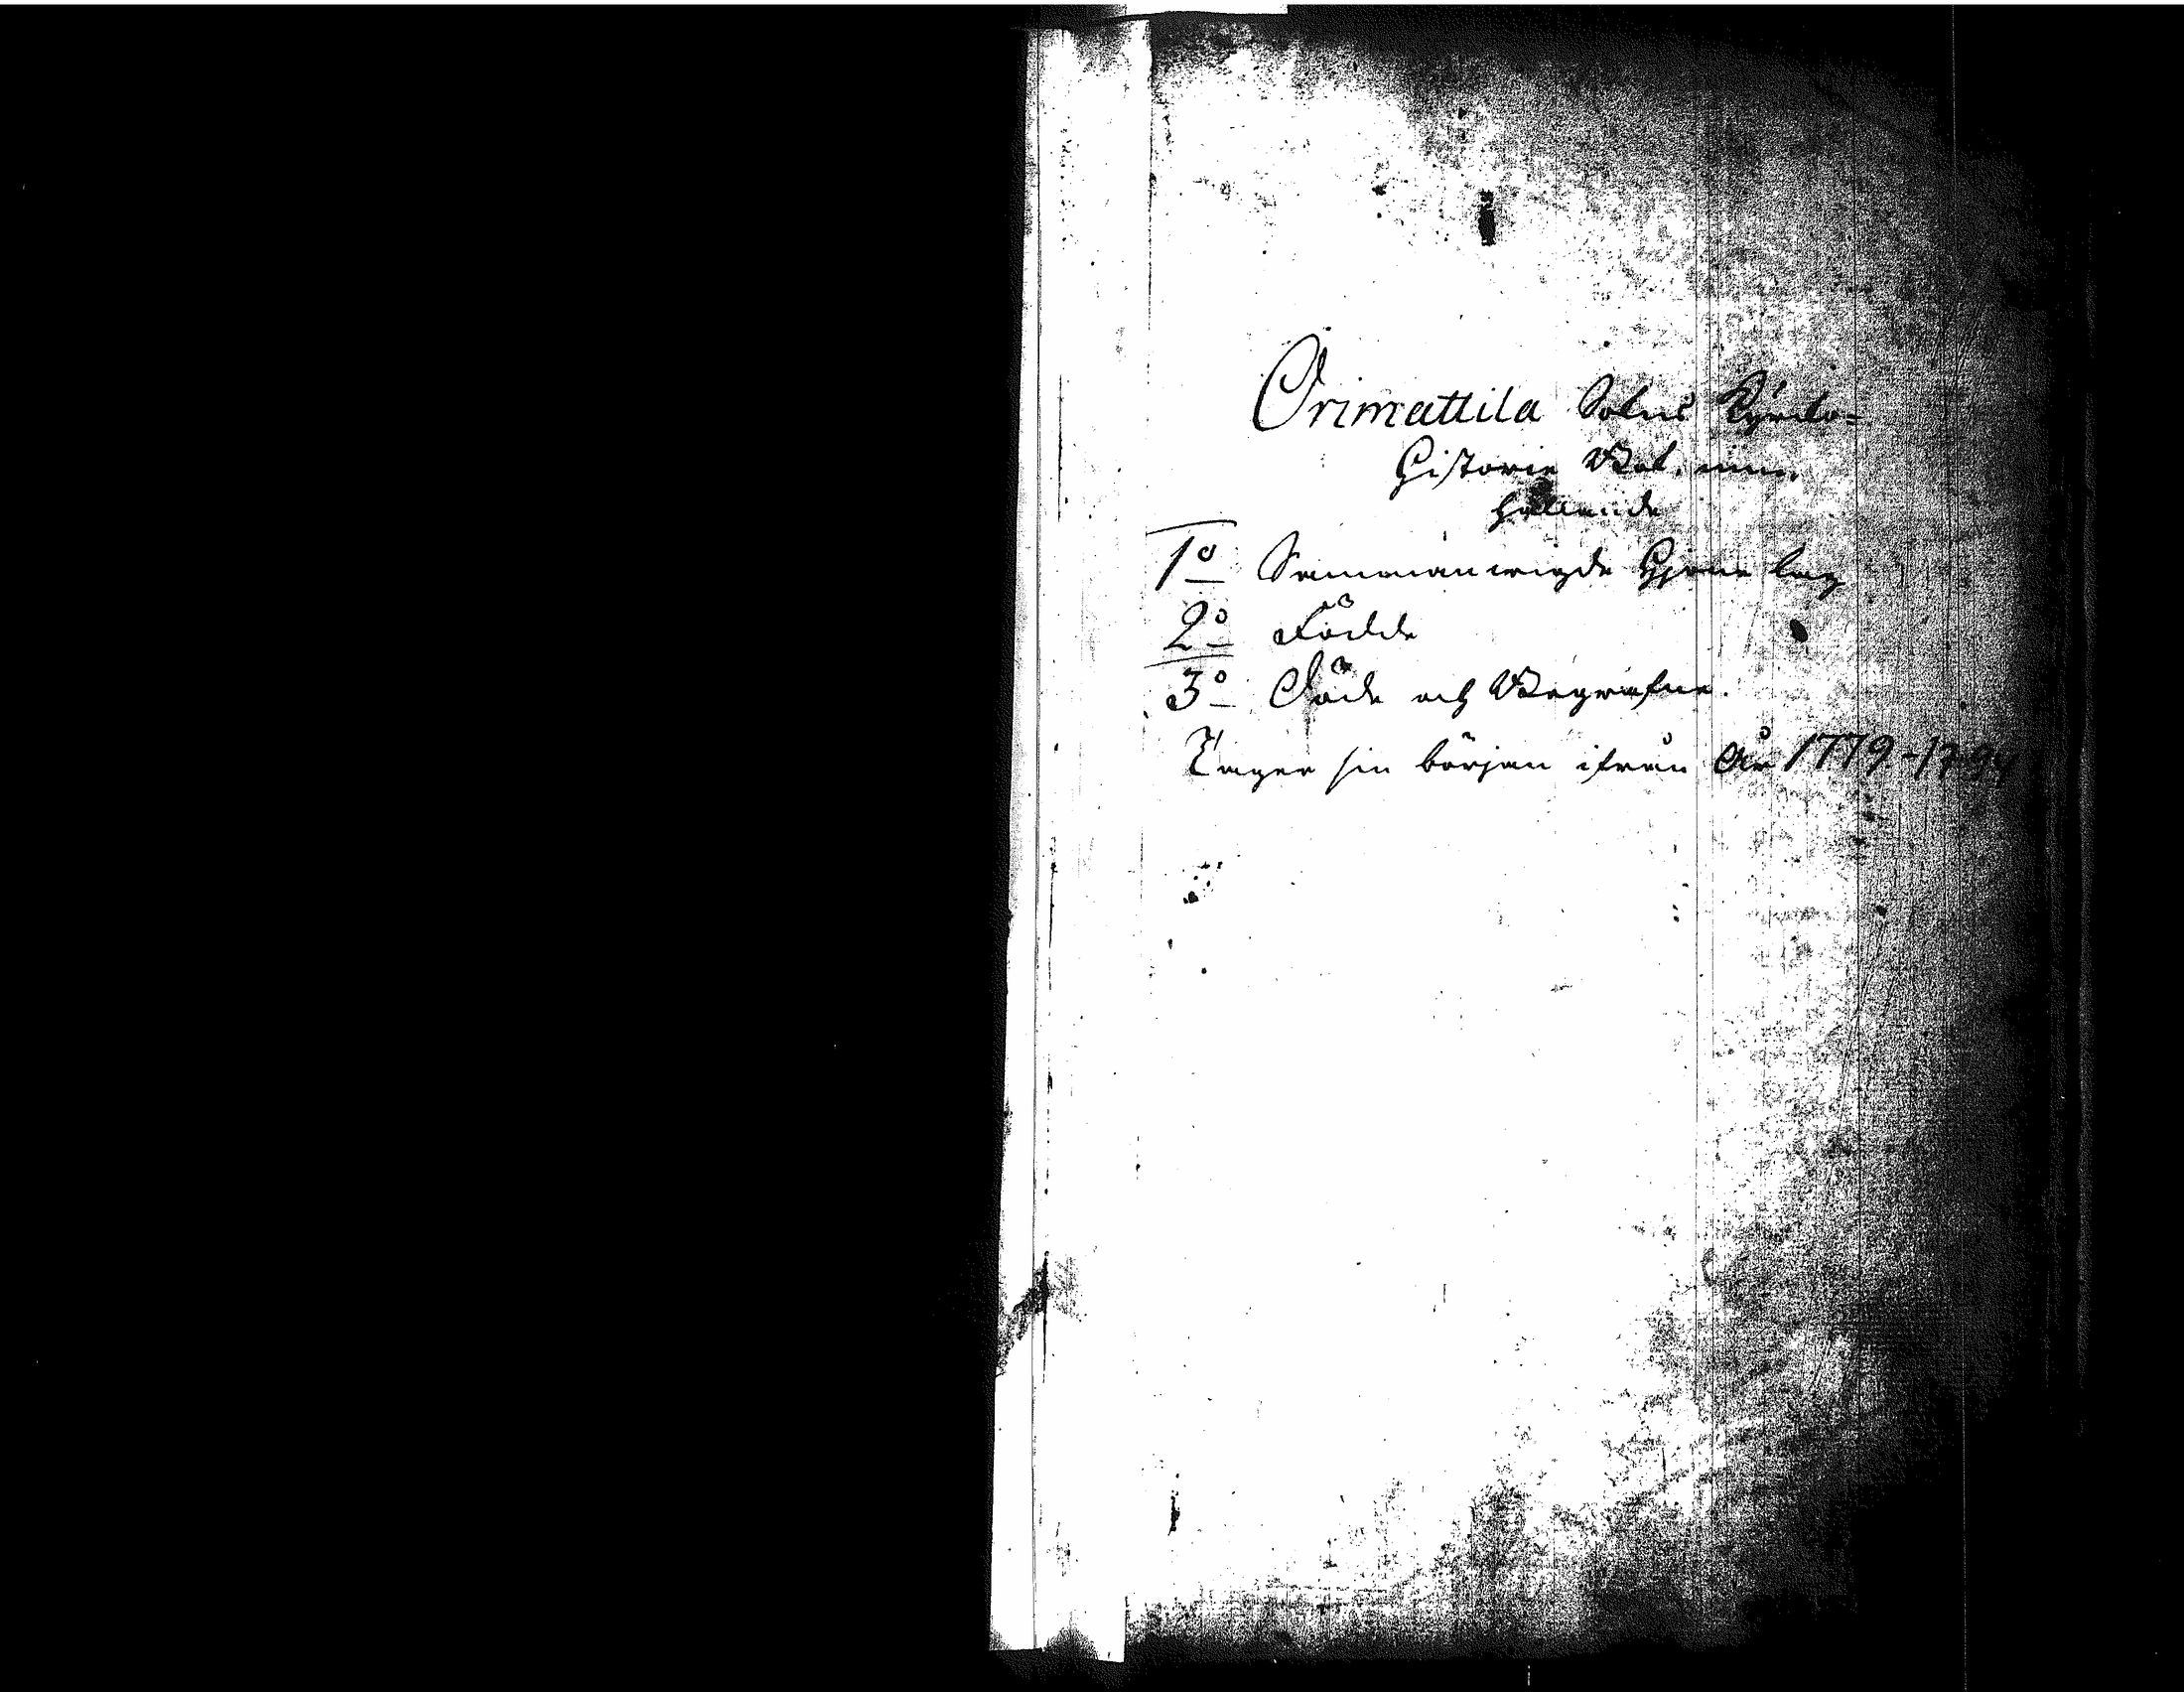 Orimattila Sokns Kyrcko=
Historie Bok. inne,
hållande
1º Sammanwigde Hjone lag
2º Födde
3º Döde och Begrafne.
Tager sin början ifrån År 1779-1794